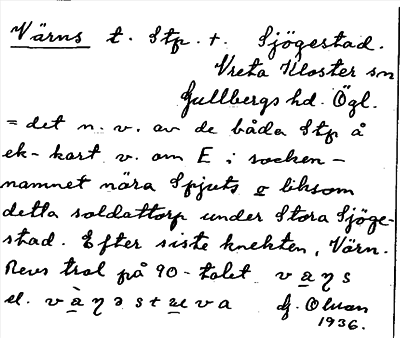 Värns t. Stp. +. Sjögestad.
Vreta Kloster sn
Gullbergs hd. Ögl.
= det n. v. av de båda Stp å
ek-kart v. om E i socken-
namnet nära Spjuts o liksom
detta soldattorp under Stora Sjöge-
stad. Efter siste knekten, Värn.
Revs trol på 90-talet
el. G. Olson
1936.